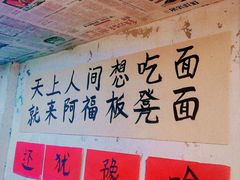 天上人间想吃面
就来阿福板凳面
还
犹
豫